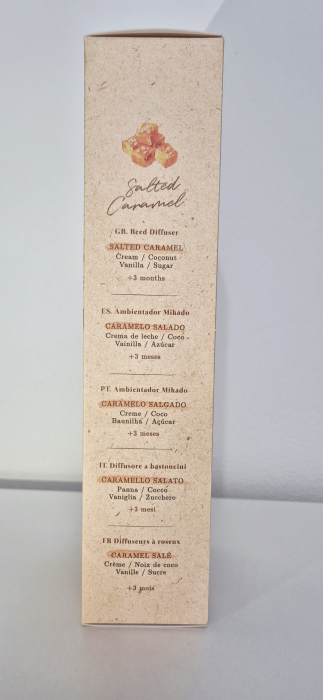 Salted
Caramel
GB. Reed Diffuser
SALTED CARAMEL
Cream / Coconut
Vanilla / Sugar
+3 months
ES. Ambientador Mikado
CARAMELO SALADO
Crema de leche / Coco -
Vainilla / Azúcar
+3 meses
PT. Ambientador Mikado
CARAMELO SALGADO
Creme / Coco
Baunilha / Açúcar
+3 meses
IT. Diffusore a bastoncini
CARAMELLO SALATO
Panna / Cocco
Vaniglia / Zucchero
+3 mesi
FR Diffuseurs à roseux
CARAMEL SALÉ
Crème / Noix de coco
Vanille / Sucre
+3 mois